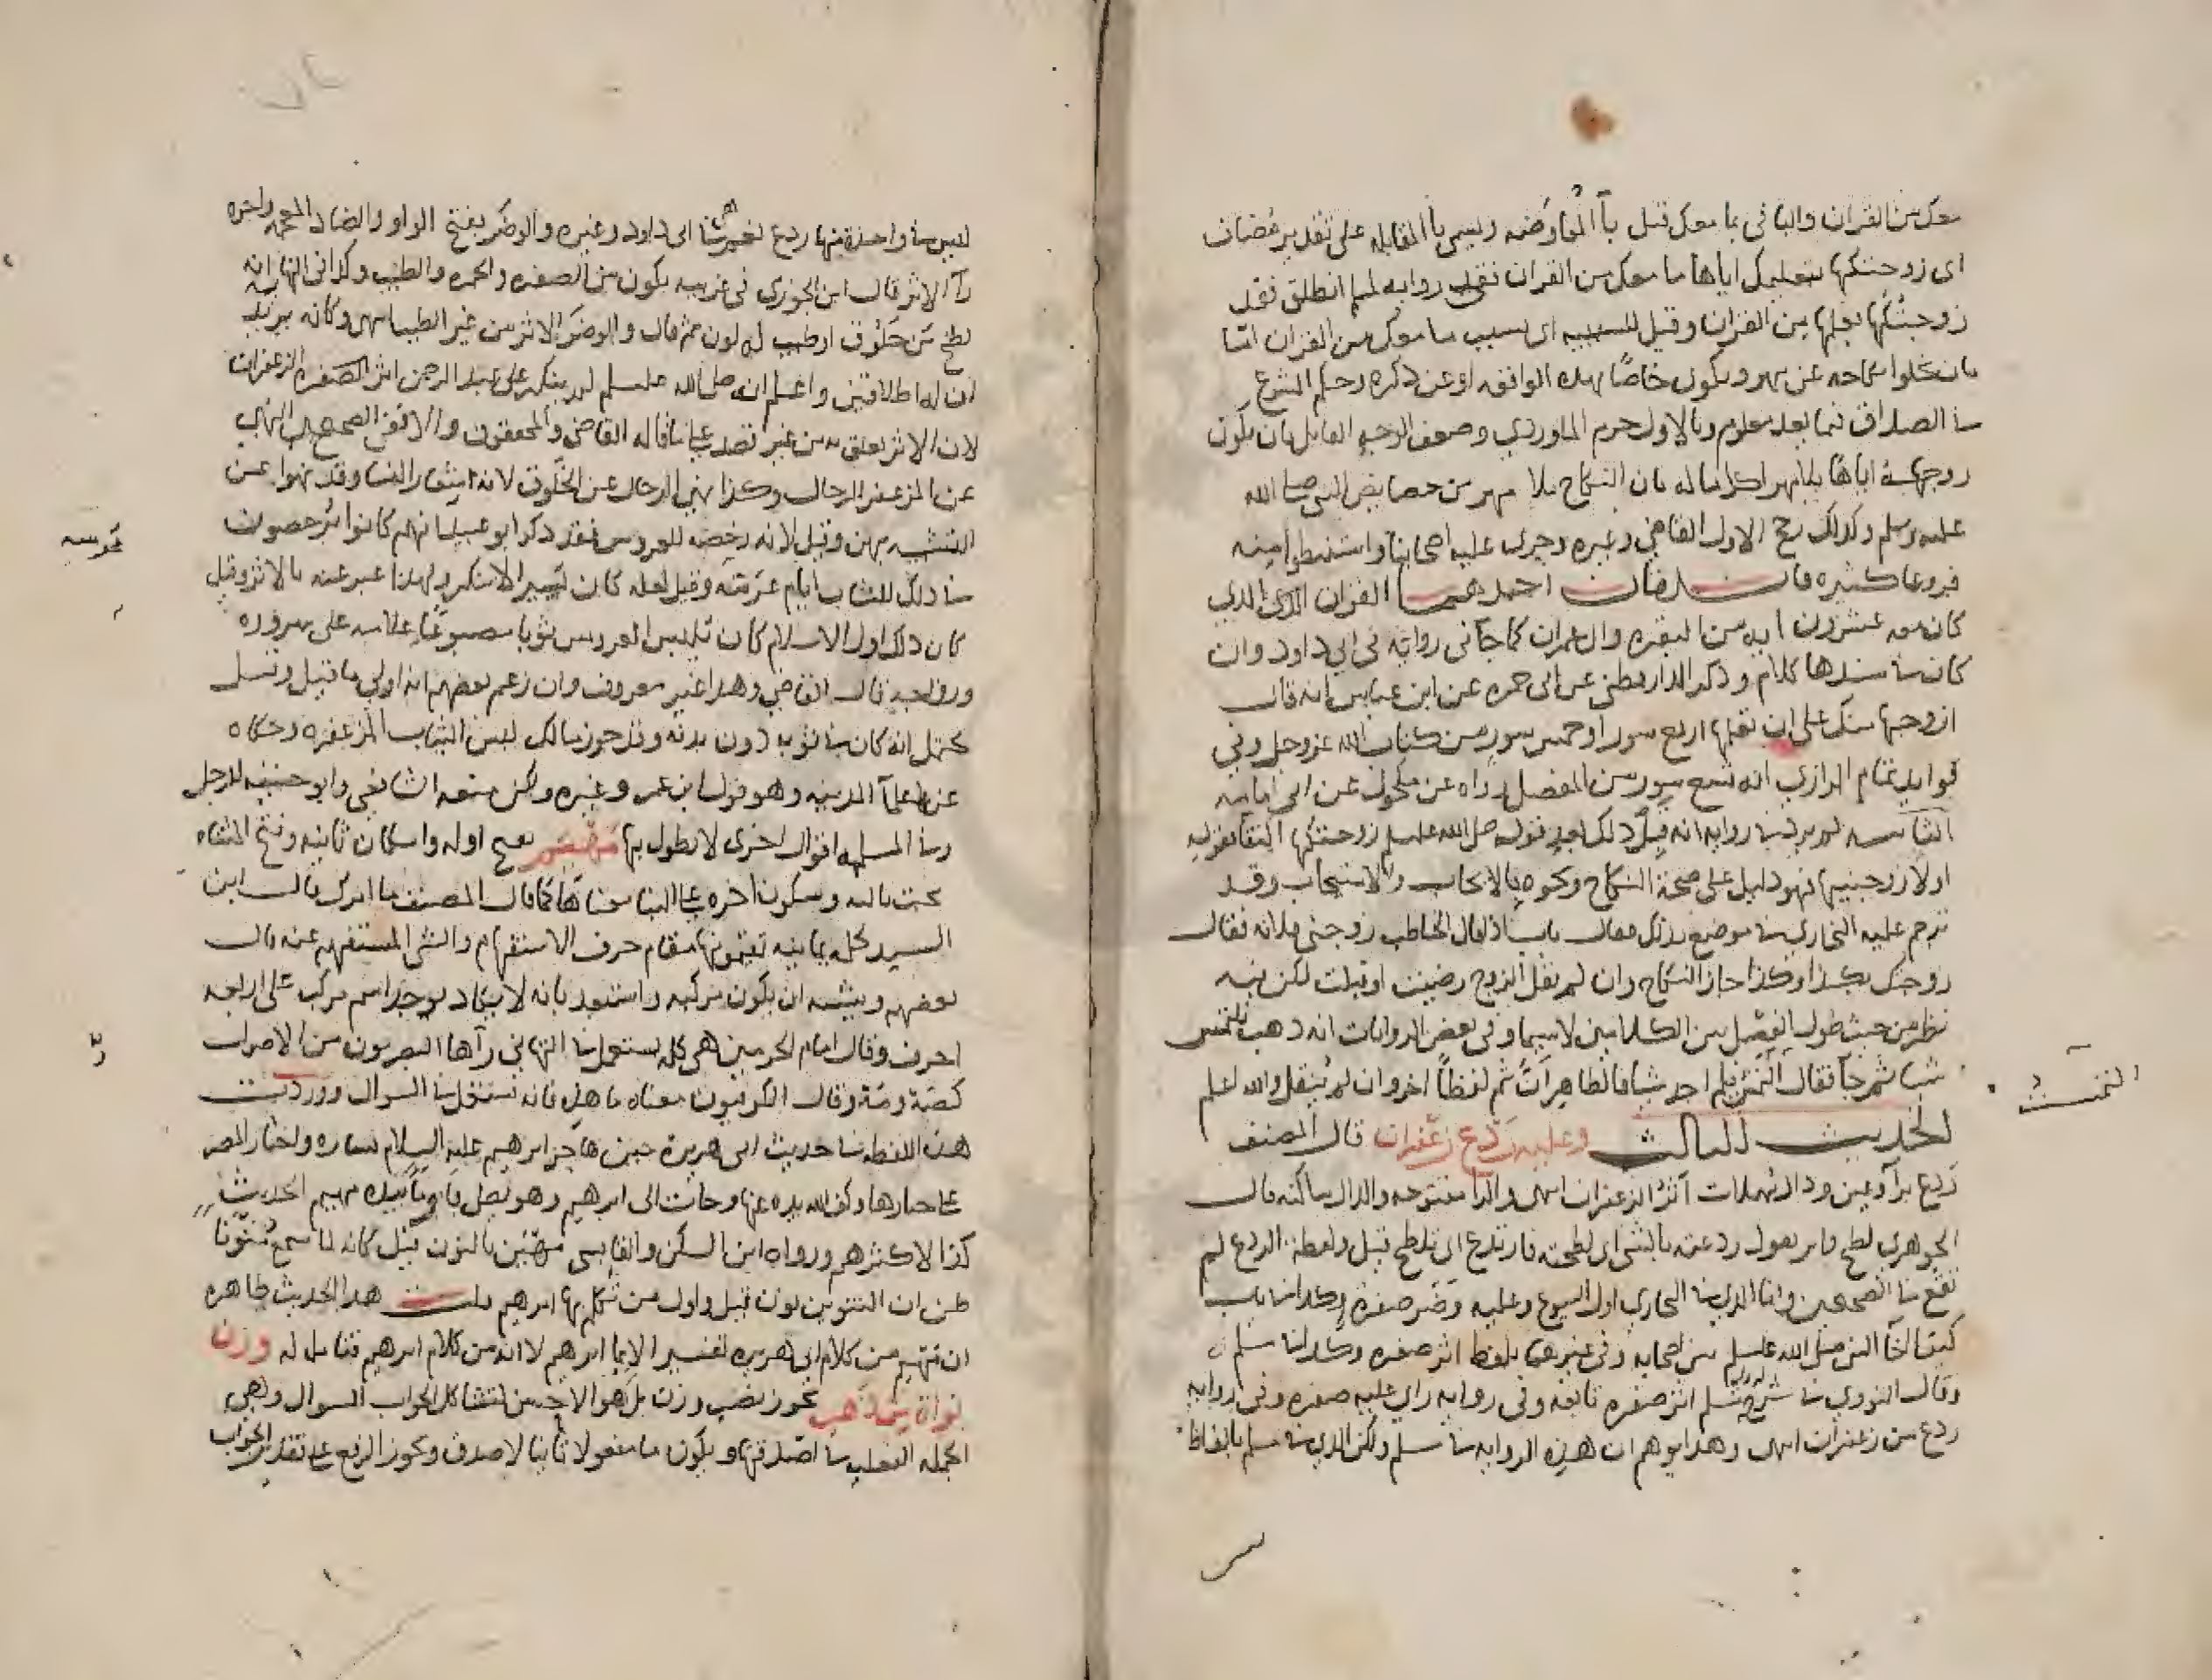 معك من القران والبا في بما معك قيل بآ المعاوضه وليس با المقابله على تقدير مضاف
اى زوجتكها بتعليمك اياها ما معك من القران ففى روايه لمسلم انطلق فقد
زوجتكها فعلمها من القران وقيل للسببيه اى بسبب ما معك من القران اما
بان يخلوا نكاحه عن مهر ويكون خاصًا بهذه الواقعه او عن ذكره وحكم الشرع
في الصداق فيما بعد معلوم وبالاول جزم الماوردي وضعف الوجه القايل بان يكون
زوجه اياها بلا مهر اكراما له بان النكاح بلا مهر من خصايص النبي صلى الله
عليه وسلم وكذلك رجح الاول القاضي وغيره وجرى عليه اصحابنا واستنبطوا منه
فروعا كثيره احدهما القران الذي
كان معه عشرون ايه من البقره وال عمران كما جآ في روايه في ابي داود وان
كان في سندها كلام وذكر الدارقطني عن ابن عباس انه قال
ازوجها منك على ان تعلمها اربع سور او خمس سور من كتاب الله عز وجل وفي
فوايد تمام الرازي انه تسع سور من المفصل رواه عن مكحول عن ابي امامه
لم يرد في روايه انه قبل ذلك بعد قول صلى الله عليه وسلم زوجتكها اكتفا بقوله
اولا زوجنيها فهو دليل على صحة النكاح ونحوه بالايجاب والاستيجاب وقد
ترجم عليه البخاري في موضع بذلك فقال باب اذا قال الخاطب زوجني فلانه فقال
زوجتك بكذا وكذا جاز النكاح وان لم يقل الزوج رضيت او قبلت لكن فيه
نظر من حيث طول الفصل بين الكلامين لا سيما وفي بعض الروايات انه ذهب يلتمس
شيا ثم جآ فقال لم اجد شيا فالظاهر ان ثم لفظًا اخر وان لم ينقل والله اعلم
الحديث الثالث وعليه ردع زعفران قال المصنف
ردع برآ وعين ودال مهملات اثر الزعفران انتهى والرا مفتوحه والدال ساكنه قال
الجوهري لطخ قال يقول ردعته بالشى اى لطخته فارتدع اى تلطخ قيل ولفظة الردع لم
تقع في الصحيحين وانما الذي في البخاري اول البيوع وعليه وضر صفرة وكذا في باب
كيف اخآ النبي صلى الله عليه وسلم بين اصحابه وفي غيرهما بلفظ اثر صفره وكذا في مسلم
وقال النووي في شرح مسلم اثر صفره وفي روايه راى عليه صفره وفي روايه
ردع من زعفران انتهى وهذا يوهم ان هذه الروايه في مسلم ولكن الذي في مسلم بالفاظ
ليس في واحدة منها ردع نعم هى في ابى داود وغيره والوضر بفتح الواو والضاد المعجمه واخره
رآ الاثر قال ابن الجوزي في غريبه يكون من الصفره والحمره والطيب وكذا في النهايه انه
لطخ من خلوق او طيب له لون ثم قال والوضر الاثر من غير الطيب انتهى وكانه يريد
ان له اطلاقين واعلم انه صلى الله عليه وسلم لم ينكر على عبد الرحمن اثر الصفره الزعفران
لان الاثر تعلق به من غير قصد على ما قاله القاضى والمحققون والا ففى الصحيح النهى
عن المزعفر للرجال وكذا نهى الرجال عن الخلوق لانه شعار النسا وقد نهوا عن
التشبه بهن وقيل لانه رخص للعروس فقد ذكر ابو عبيد انهم كانوا يرخصون
في ذلك للشاب ايام عرسه وقيل لعله كان يسيرا لا ينكر ولهذا عبر عنه بالاثر وقيل
كان ذلك اول الاسلام كان يلبس العروس ثوبا مصبوغًا علامه على سروره
وزواجه قال القاضي وهذا غير معروف وان زعم بعضهم انه اولى ما قيل وقيل
يحتمل انه كان في ثوبه دون بدنه وقد جوز مالك لبس الثياب المزعفره وحكاه
عن علمآ المدينه وهو قول ابن عمر وغيره ولكن منعه الشافعي وابو حنيفه للرجل
وفي المسله اقوال اخرى لا نطول بها مهيم بفتح اوله واسكان ثانيه وفتح المثناه
تحت ثالثه وسكون اخره على البنا معناها كما قال المصنف ما امرك قال ابن
السيد كلمه يمانيه تقيمونها مقام حرف الاستفهام والشى المستفهم عنه قال
بعضهم ويشبه ان يكون مركبه واستبعد بانه لا يكاد يوجد اسم مركب على اربعه
احرف وقال امام الحرمين هى كلمه تستعمل في التهاني رآها البصريون من الاصوات
كصه ومه وقال الكوفيون معناه ما هذه فانه تستعمل في السوال ووردت
هذه اللفظه في حديث ابى هريره حين هاجر ابرهيم عليه السلام بساره
وكف الله يده عنها وجات الى ابرهيم وهو يصلي فاومأ بيده مهيم الحديث
كذا لاكثرهم ورواه ابن السكن والقابسي مهين بالنون قيل كانه لما سمع منونا
ظن ان التنوين نون قيل واول من تكلم بها ابرهيم قلت هذا الحديث ظاهره
ان مهيم من كلام ابى هريره لتفسير الايما ابرهيم لا انه من كلام ابرهيم فتامله وزن
نواة من ذهب يجوز نصب وزن بل هو الاحسن لتشاكل الجواب السوال وهي
الجمله الفعليه في اصدقتها ويكون ما مفعولا ثانيا لاصدق ويجوز الرفع على تقدير الجواب